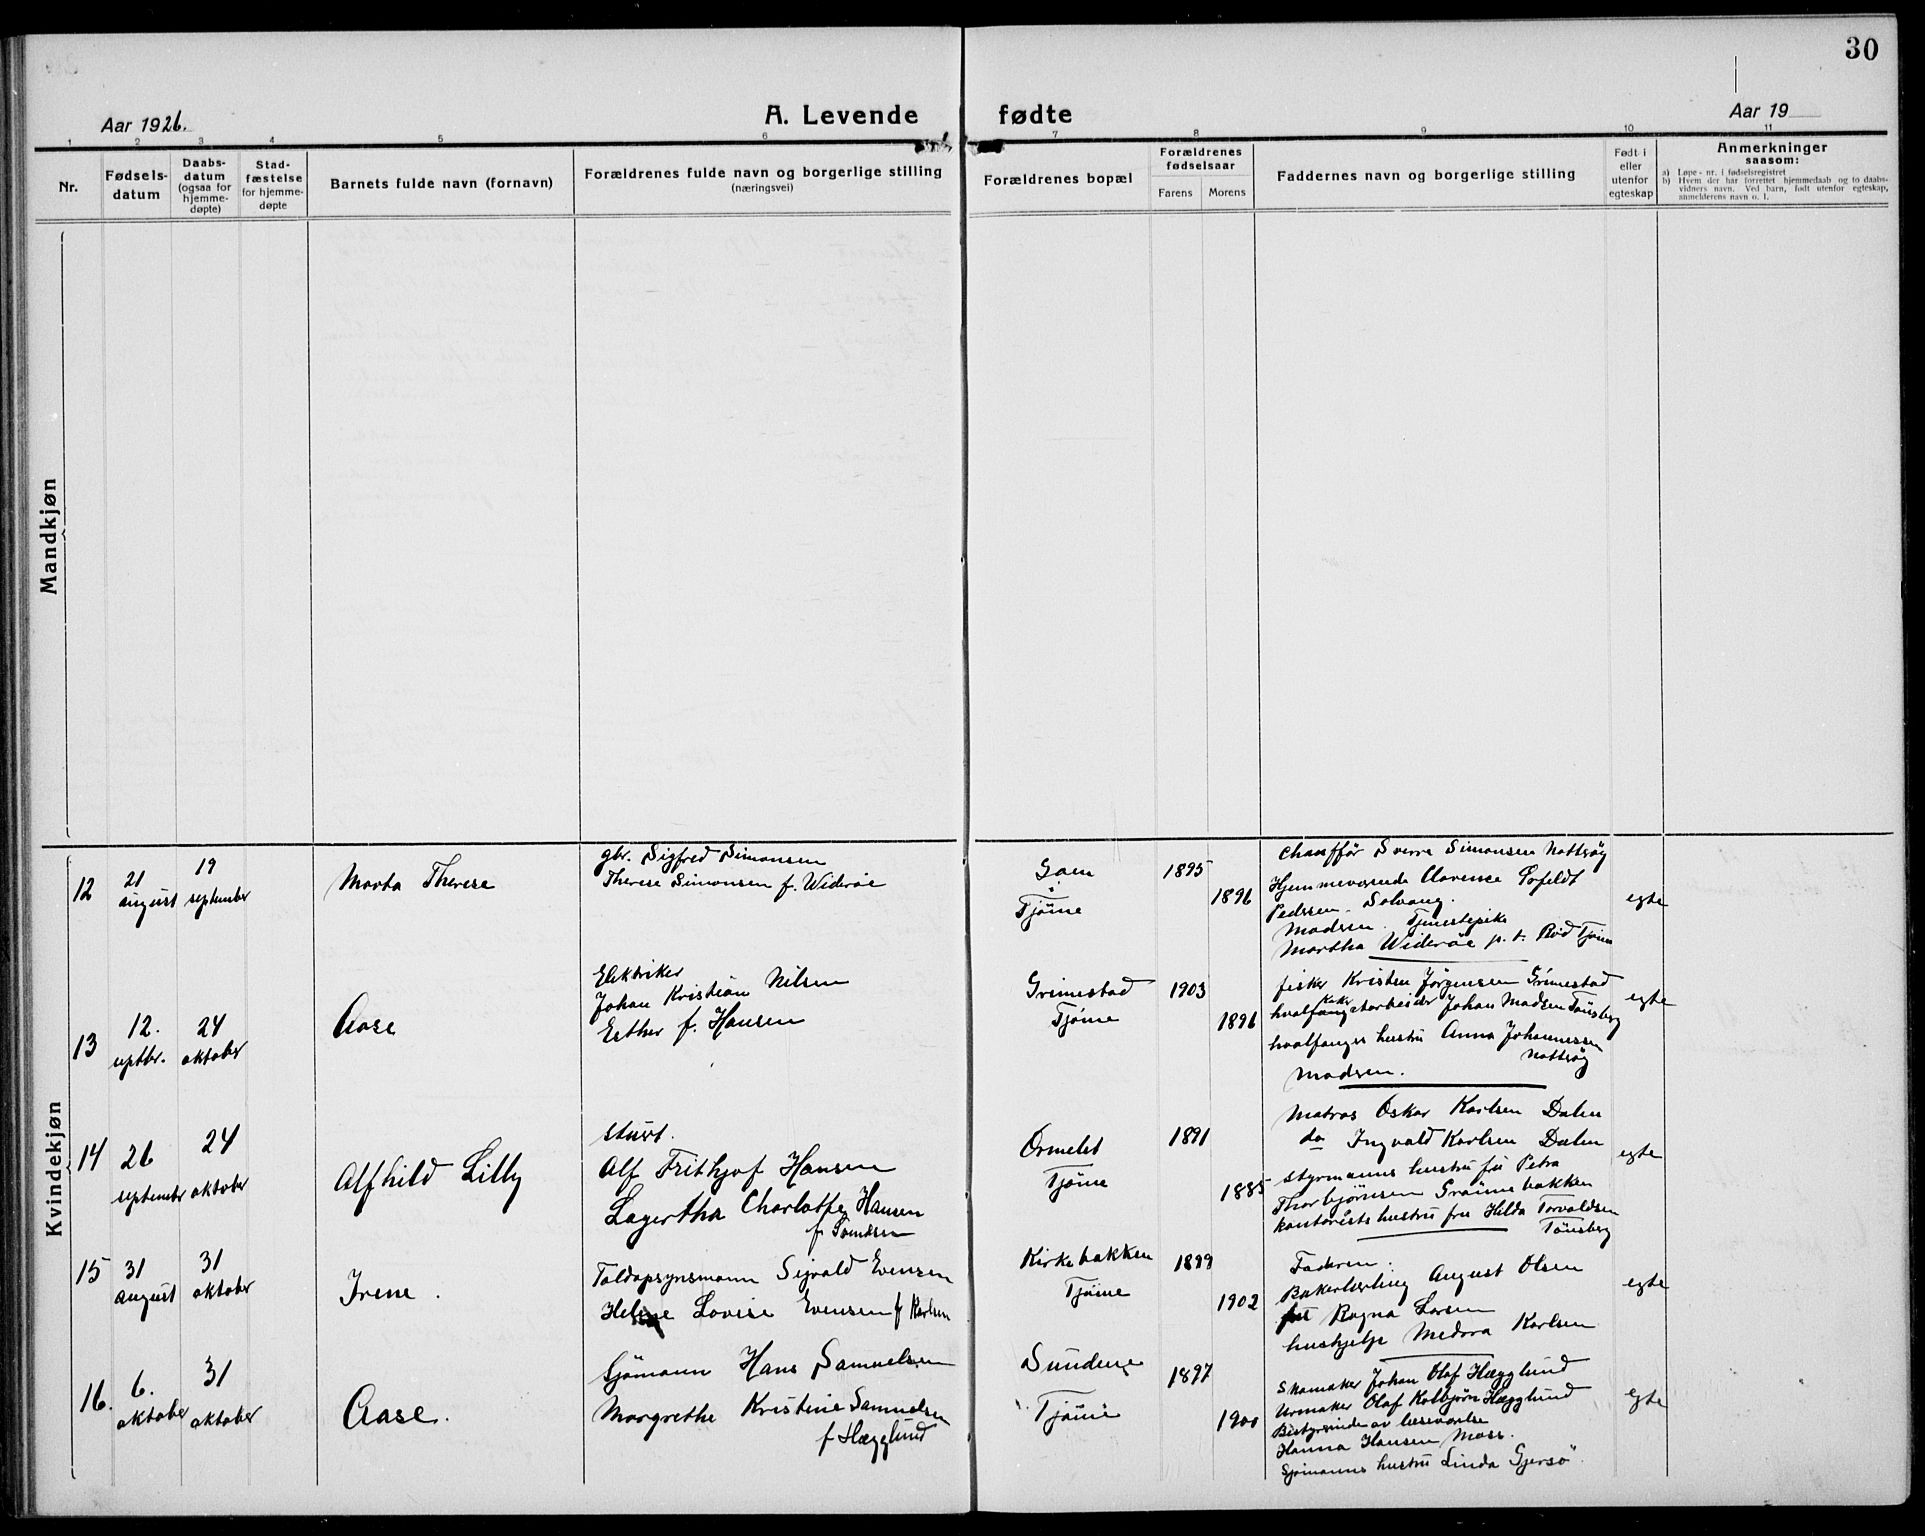 30
Aar 1926.
A. Levende fødte
Aar 19
1 2 3 4 5 6 7 8 9 10 11
Nr.
Fødsels-
datum
Daabs-
datum
(ogsaa for
hjemme-
døpte)
Stad-
fæstelse
for hjemme-
døpte
Barnets fulde navn (fornavn)
Forældrenes fulde navn og borgerlige stilling
(næringsvei)
Forældrenes bopæl
Forældrenes
fødselsaar
Farens Morens
Faddernes navn og borgerlige stilling
Født i
eller
utenfor
egteskap
Anmerkninger
saasom:
a) Løpe-nr. i fødselsregistret
b) Hvem der har forrettet hjemmedaab og to daabs-
vidners navn. Ved barn, født utenfor egteskap,
anmelderens navn o. l.
Mandkjøn
Kvindekjøn
12
21
august
19
september
Marta Therese
gbr. Sigfred Simonsen
Therese Simonsen f. Widerøe
Tjøme
1895
1896
Chauffør Sverre Simonsen Nøttrøy
Hjemmeværende Clarence
Pedersen Solvang.
Madsen. Tjenestepike
Martha Widerøe p.t. Rød Tjøme
egte
13
12.
septbr.
24
oktober
Aase
Elektriker
Johan Kristian Nilsen
Esther f. Hansen
Grimestad
Tjøme
1903
1896
fisker Kristen Jørgensen Grimestad
Johan Madsen Tønsberg
hvalfanger hustru Anna Johannessen
Nøttrøy
Madsen.
egte
14
26
septembr
24
oktober
Alfhild Lilly
stuert.
Alf Frithjof Hansen
Lagertha Charlotte Hansen
f. Svendsen
Ormelet
Tjøme
1891
1885
Matros Oskar Karlsen Dalen
do Ingvald Karlsen Dalen
styrmanns hustru fru Petra
Thorbjørnsen Graamebakken
kontorists hustru fru Hilda Torvaldsen
Tønsberg
egte
15
31
august
31
oktober
Irene.
Toldopsynsmann Sigvald Evensen
Helene Lovise Evensen f Karlsen
Kirkebakken
Tjøme
1899
1902
Faderen.
Bakerlærling August Olsen
Ragna Larsen
hushjelp Medora Karlsen
egte
16.
6.
oktober
31
oktober
Aase.
Sjømann Hans Samuelsen
Margrethe Kristine Samuelsen
f Hægglund
Sundene
Tjøme
1897
1900
Skomaker Johan Olaf Hægglund
Urmaker Olaf Kolbjørn Hægglund
Bestyrerinde av læseværelse
Hanna Hansen Moss.
Sjømanns hustru Linda Gjersø.
egte